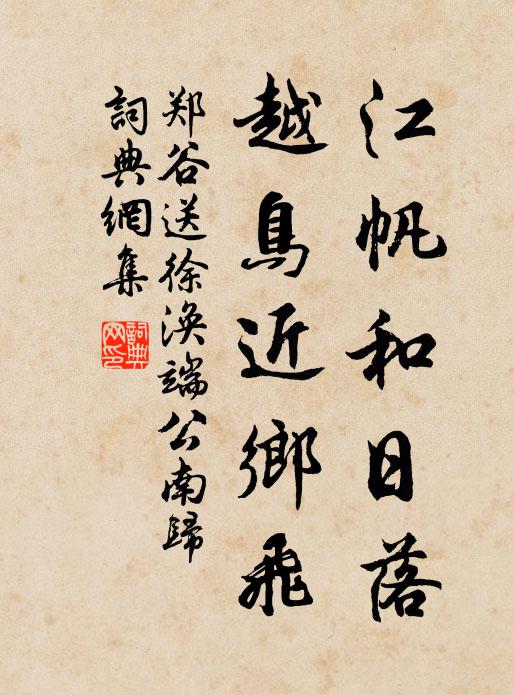 江帆和日落
越鳥近鄉飛
郑谷送徐涣端公南歸
詞典網集
詞典网印